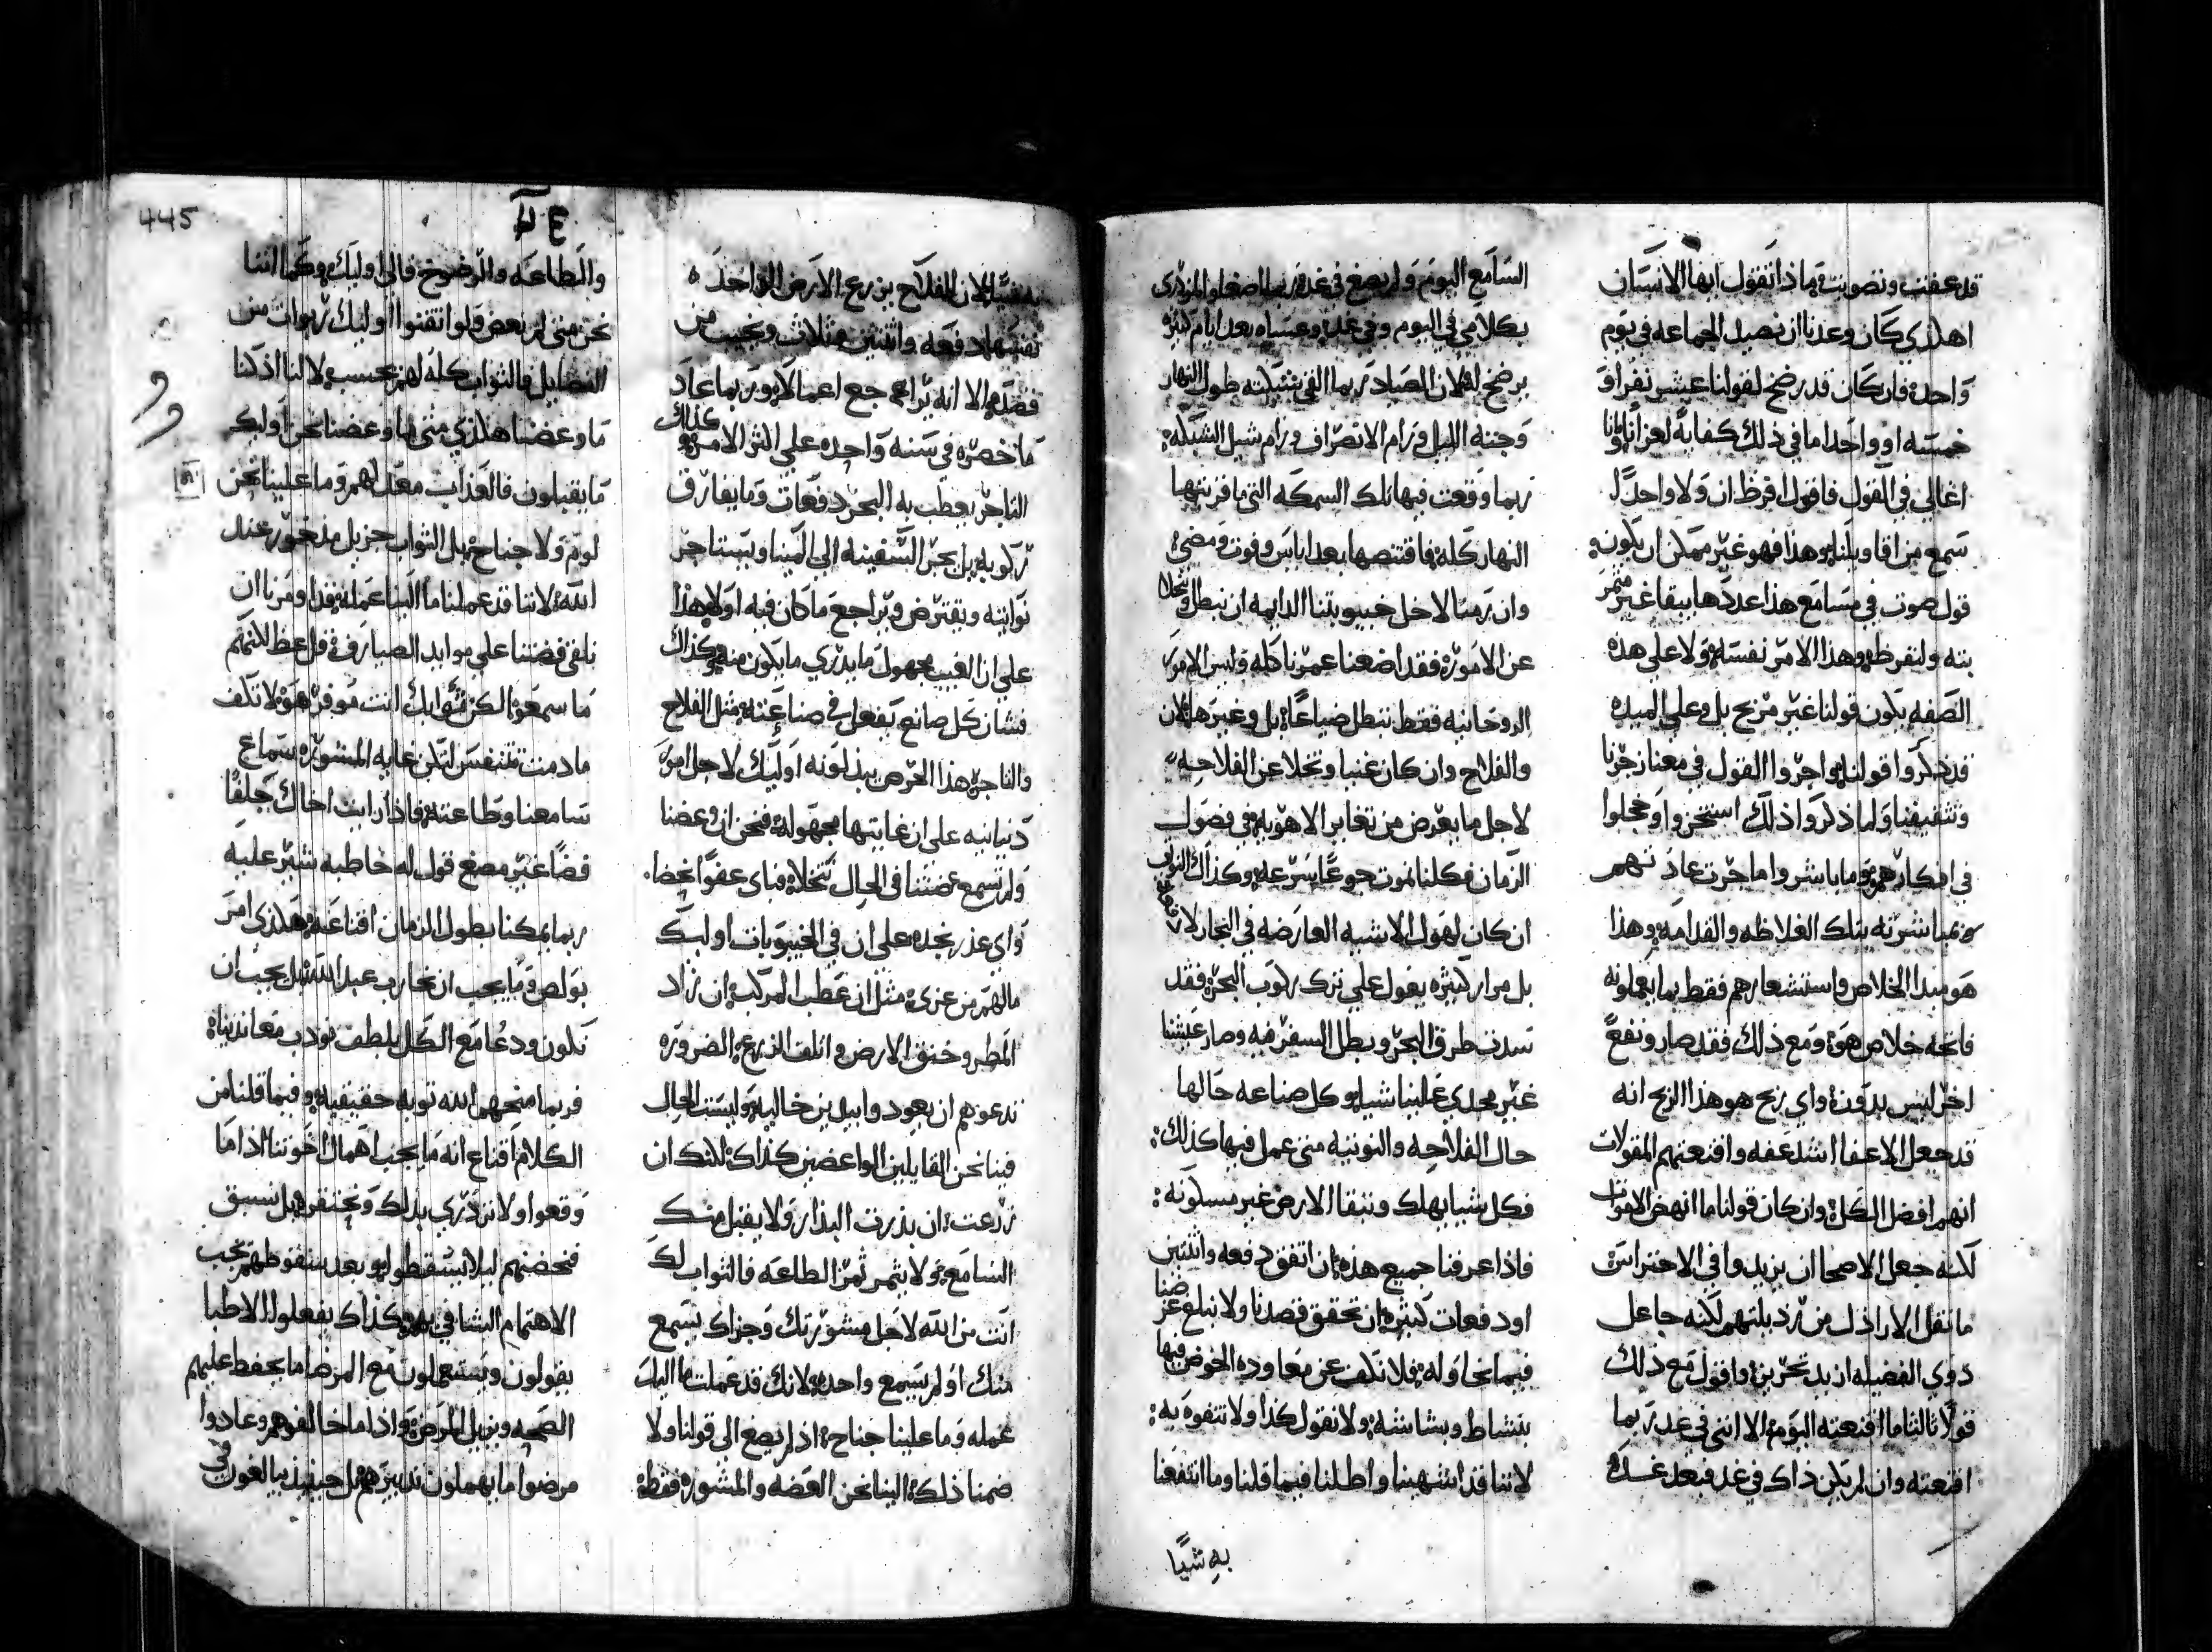 قد عفت ونصونت وماذا تقول ايها الانسان
اهلذي كان وعدنا ان نصيد الجماعه في يوم
واحد فان كان قد رضخ لقولنا عيشر نفر او
خمسه او واحد اما في ذلك كفايةً لعزانا وانا
اغالي في القول فاقول افرظ ان ولا واحد
سمع من اقاويلنا وهذا فهو غير ممكن ان يكون
قول صوت في مسامع هذا عددها يبقا غير مثمر
بته ولنفرظ وهذا الامر نفسه ولا علي هذه
الصفه يكون قولنا غير مربح بل وعلي الميده
قد ذكروا قولنا واجروا القول في معنا زجرنا
وتثقيفنا ولما ذكروا ذلك استخزوا وخجلوا
في افكارهم وما باشروا ما جرت عادتهم
بمباشرته بتلك الغلاظه والفدامه وهذا
هو مبدا الخلاص واستشعارهم فقط بما يعملونه
فاتحه خلاص هو ومع ذلك فقد صار ونفعً
اخر ليس بدون واي ربح هو هذا الربح انه
قد جعل الاعفا اشد عفه واقنعتهم المقولات
انهم افضل الكل وان كان قولنا ما انهض الاموات
لكنه جعل الاصحا ان يزيدوا في الاحتراس
ما نقل الاراذل من رذيلتهم لكنه جاعل
ذوي الفضيله ازيد تحريز واقول مع ذلك
قولاً ثالثا ما اقنعته اليوم الا انني في غد ربما
اقنعته وان لم يكن ذاك في غد فبعد غد
السامع اليوم ولم يصغ في غد وربما اصغا والمزدري
بكلامي في اليوم وفي غد وعساه بعد ايام كثيره
يرضخ له لان الصياد ربما القي شبكته طول النهار
وجنه الليل ورام الانصراف ورام شيل الشبكه
ربما وقعت فيها تلك السمكه التي ما قربتها
النهار كله فاقتنصها بعد اياس وفوت ومضي
وان رمنا لاجل خيبوبتنا الدايمه ان نبطل ونتخلا
عن الامور فقد اضعنا عمرنا كله وليس الامور
الروحانيه فقط تبطل ضياعًا بل وغيرها لان
والفلاح وان كان غنيا وتخلا عن الفلاحه
لاجل ما يعرض من تغاير الاهويه في فصول
الزمان فكلنا نموت جوعًا بسرعه وكذاك النوتي
ان كان لهول الاشيه العارضه في البحار لا دفعات
بل مرار كثيره يعول علي ترك ركوب البحر فقد
سدت طرق البحر وبطل السفر فيه وصار عيشنا
غير مجدي علينا شيا وكل صناعه حالها
حال الفلاحه والنوتيه متي عمل فيها كذلك
فكل شيا يهلك وتبقا الارض غير مسلوكه
فاذا عرفنا جميع هذه ان اتفق دفعه واثنتين
او دفعات كثيره ان تحقق قصدنا ولا نبلغ غرضنا
فيما نحاوله فلا نكف عن معاودة الخوض فيها
بنشاط وبشاشه ولا نقول كذا ولا نتفوه به
لاننا قد اشهبنا واطلنا فيما قلنا وما انتفعنا
به شيًا
445
به شيًا لان الفلاح يزرع الارض الواحده
نفسها دفعه واثنتين وثلاث ويخيب من
قصده الا انه يراجع اعماله وربما عاد
ما خصره في سنه واحده علي اكثر الامر وكذلك
التاجر يعطب به البحر دفعات وما يفارق
ركوبه بل يجر السفينه الي المينا ويستاجر
نواتيه ويقترض ويراجع ما كان فيه اولا هذا
علي ان الغيب مجهول ما يدري ما يكون منه وكذاك
فشان كل صانع يفعل في صناعته مثل الفلاح
والتاجر هذا الحرص يبذلونه اوليك لاجل امور
دنيانيه علي ان غايتها مجهوله فنحن ان وعضنا
ولم تسمع عضتنا في الحال نتخلا فباي عفوًا نحضا
واي عذر نجده علي ان في الخيبويات اوليك
ما لهم من عزي مثل ان عطب المركب ان زاد
المطر وخنق الارض واتلف الزرع الضروره
تدعوهم ان يعود وابيدين خاليه وليست الحال
فينا نحن القايلين الواعضين كذاك لانك ان
زرعت ان بذرت البذار ولا يقبل منك
السامع ولا يثمر ثمر الطاعه فالثواب لك
انت من الله لاجل مشورتك وجزاك يسمع
منك او لم يسمع واحد لانك قد عملت ما اليك
عمله وما علينا جناح اذ لم يصغ الي قولنا ولا
ضمنا ذلك الينا نحن العضه والمشوره فقط
والطاعه والرضوخ فالي اوليك وكما اننا
نحن متي لم نعض ولو اتقنوا اوليك ربوات من
الفضايل فالثواب كله لهم يحسب لا لنا اذ كنا
ما وعضنا هلذي متي ما وعضنا نحن اوليك
ما يقبلون فالعذاب معد لهم وما علينا نحن
لوم ولا جناح بل الثواب جزيل مذخور عند
الله لاننا قد عملنا ما الينا عمله فقد اومرنا ان
نلقي فضتنا علي موايد الصيارف قل عظ لانكم
ما سمعوا لكن ثوابك انت موفر هو لا تكف
ما دمت تتنفس لتكن غايه المشوره سماع
سامعنا وطاعته فاذا رايت اخاك جلفًا
فضًا غير مصغ قول له خاطبه شير عليه
ربما يمكننا بطول الزمان اقناعه هلذي امر
بولص وما يجب ان تحارب عبد الله بل يجب ان
نكون ودعا مع الكل بلطف نودب معاندينا
فربما منحهم الله توبه حقيقيه وفيما قلنا من
الكلام اقناع انه ما يجب اهمال اخوتنا اذا ما
وقعوا ولا نزدري بذلك ونحتقره بل نسبق
فنحضنهم ليلا يسقطوا وبعد سقوطهم يجب
الاهتمام الشافي بهم وكذاك يفعلوا الاطبا
يقولون ويستعملون مع المرضا ما يحفظ عليهم
الصحه ويزيل المرض واذا ما خالفوهم وعادوا
مرضوا ما يهملون تدبيرهم بل حينيذ يبالغون في